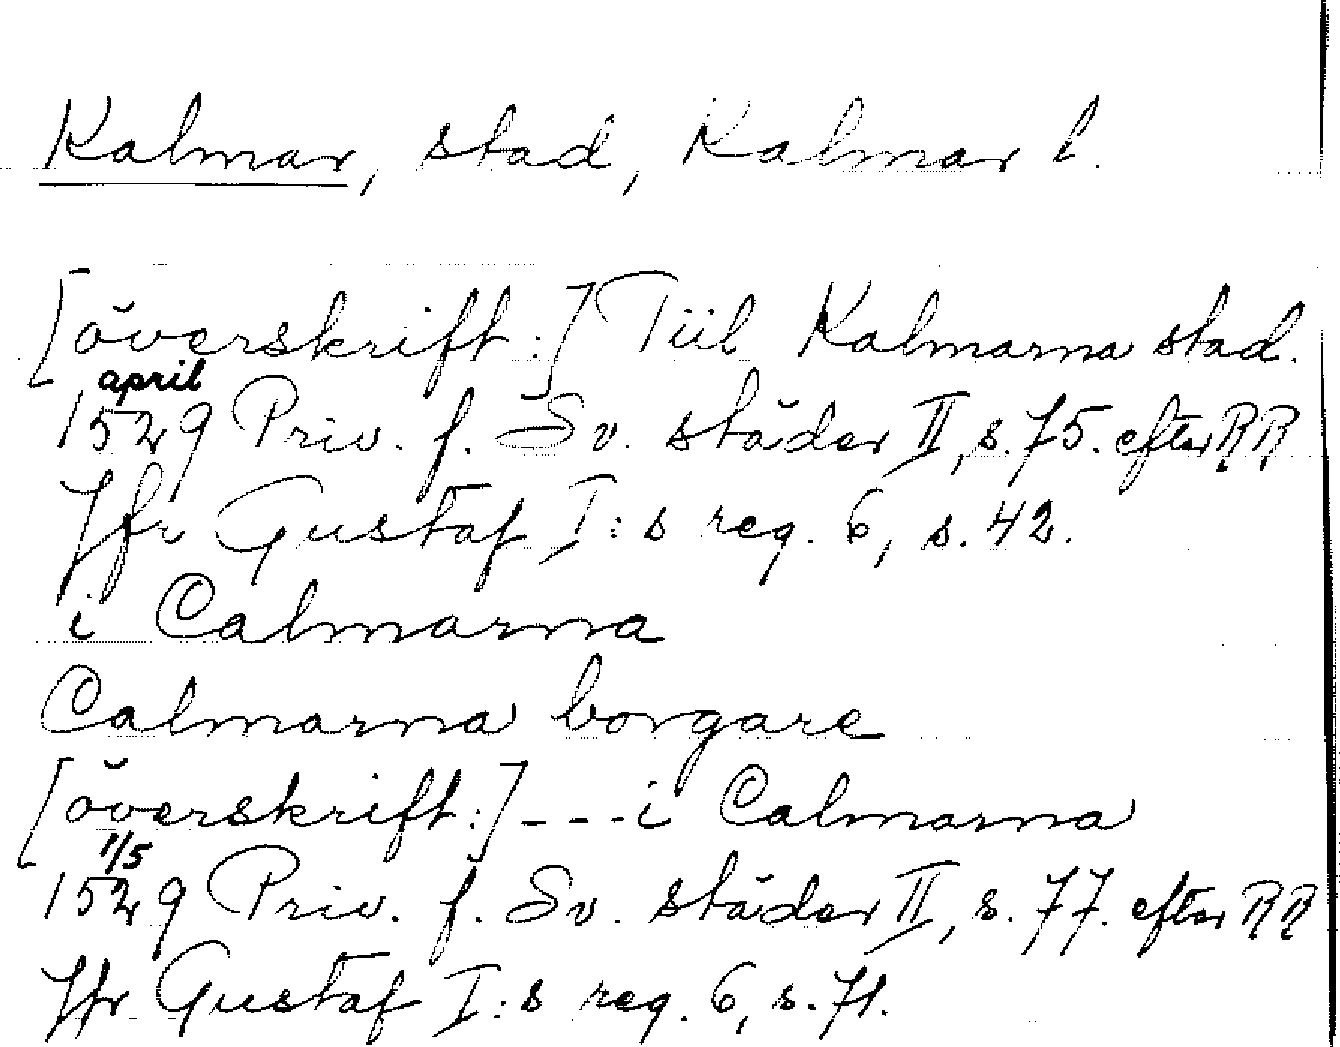 Kalmar, stad, Kalmar l.
[överskrift:] Tiil Kalmarna stad.
april
1529 Priv. f. Sv. städer II, s. 75. efter RR
Jfr Gustaf I:s reg. 6, s. 42.
i Calmarna
Calmarna borgare
[överskrift:] --- i Calmarna
1/5
1529 Priv. f. Sv. städer II, s. 77. efter RR
Jfr Gustaf I:s reg. 6, s. 71.